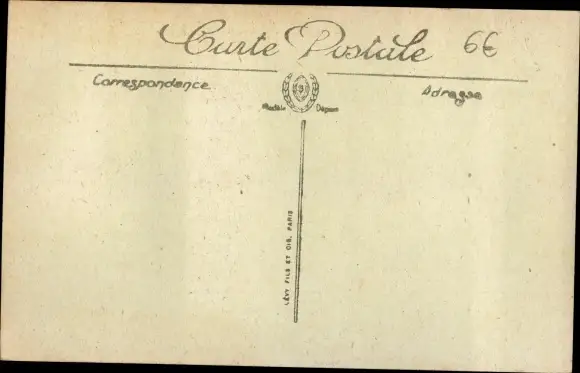 Carte Postale 6€
Correspondance
Adresse
Modèle Déposé
LÉVY FILS ET CIE, PARIS